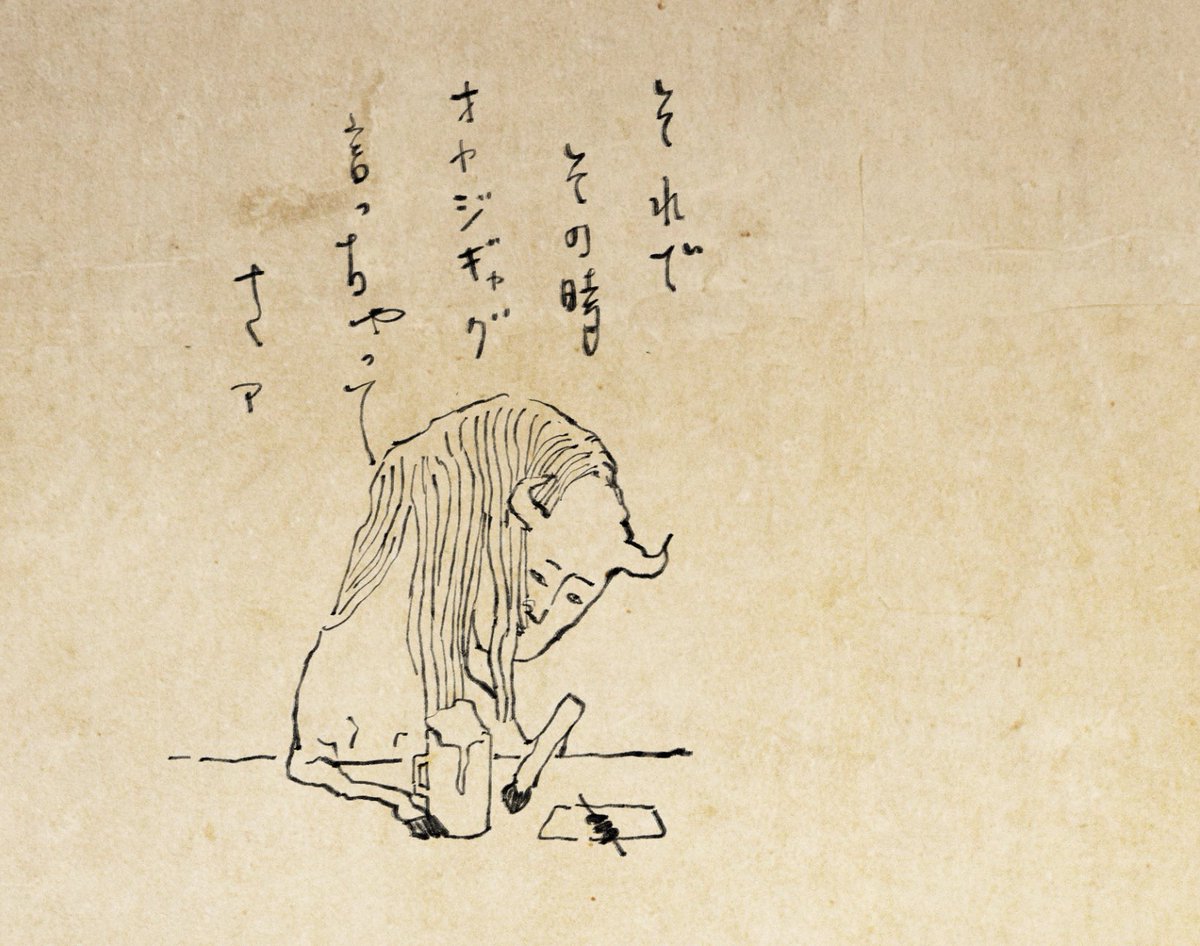 それで
その時
オヤジギャグ
言っちゃって
さァ